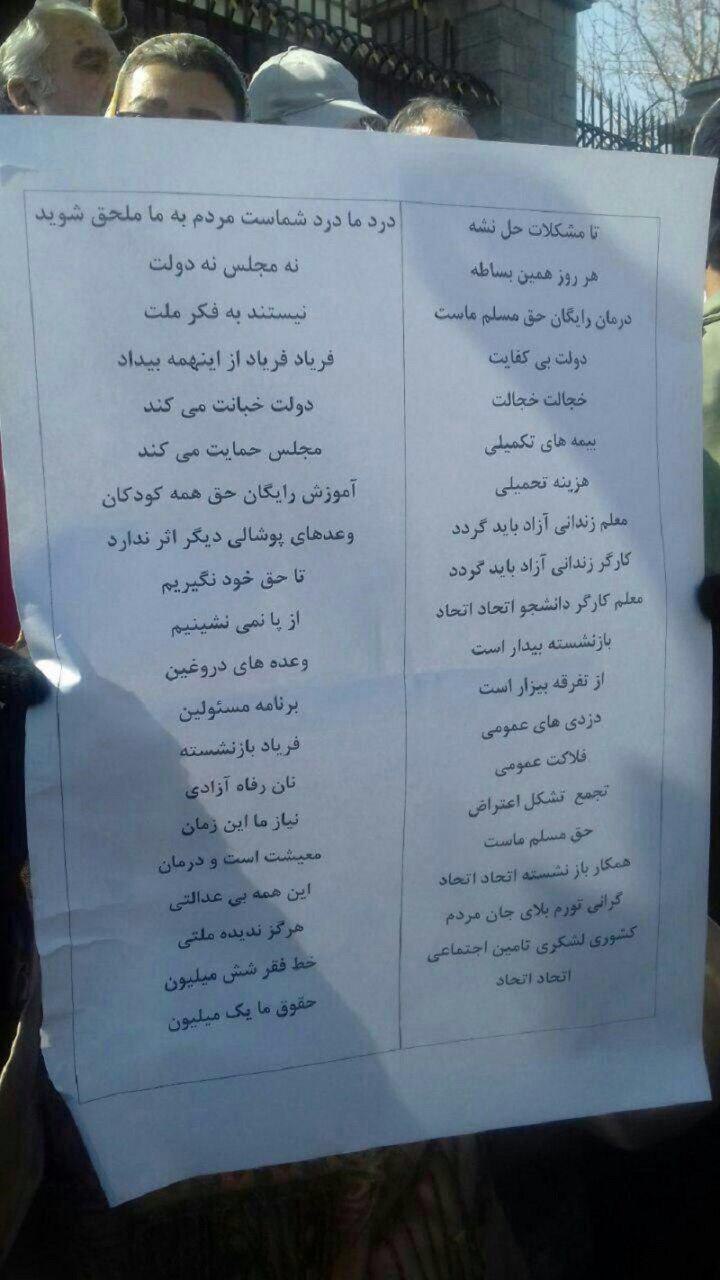 تا مشکلات حل نشه
هر روز همین بساطه
درمان رایگان حق مسلم ماست
دولت بی کفایت
خجالت خجالت
بیمه های تکمیلی
هزینه تحمیلی
معلم زندانی آزاد باید گردد
کارگر زندانی آزاد باید گردد
معلم کارگر دانشجو اتحاد اتحاد
بازنشسته بیدار است
از تفرقه بیزار است
دزدی های عمومی
فلاکت عمومی
تجمع تشکل اعتراض
حق مسلم ماست
همکار باز نشسته اتحاد اتحاد
گرانی تورم بلای جان مردم
کشوری لشکری تامین اجتماعی
اتحاد اتحاد
درد ما درد شماست مردم به ما ملحق شوید
نه مجلس نه دولت
نیستند به فکر ملت
فریاد فریاد از اینهمه بیداد
دولت خیانت می کند
مجلس حمایت می کند
آموزش رایگان حق همه کودکان
وعدهای پوشالی دیگر اثر ندارد
تا حق خود نگیریم
از پا نمی نشینیم
وعده های دروغین
برنامه مسئولین
فریاد بازنشسته
نان رفاه آزادی
نیاز ما این زمان
معیشت است و درمان
این همه بی عدالتی
هرگز ندیده ملتی
خط فقر شش میلیون
حقوق ما یک میلیون